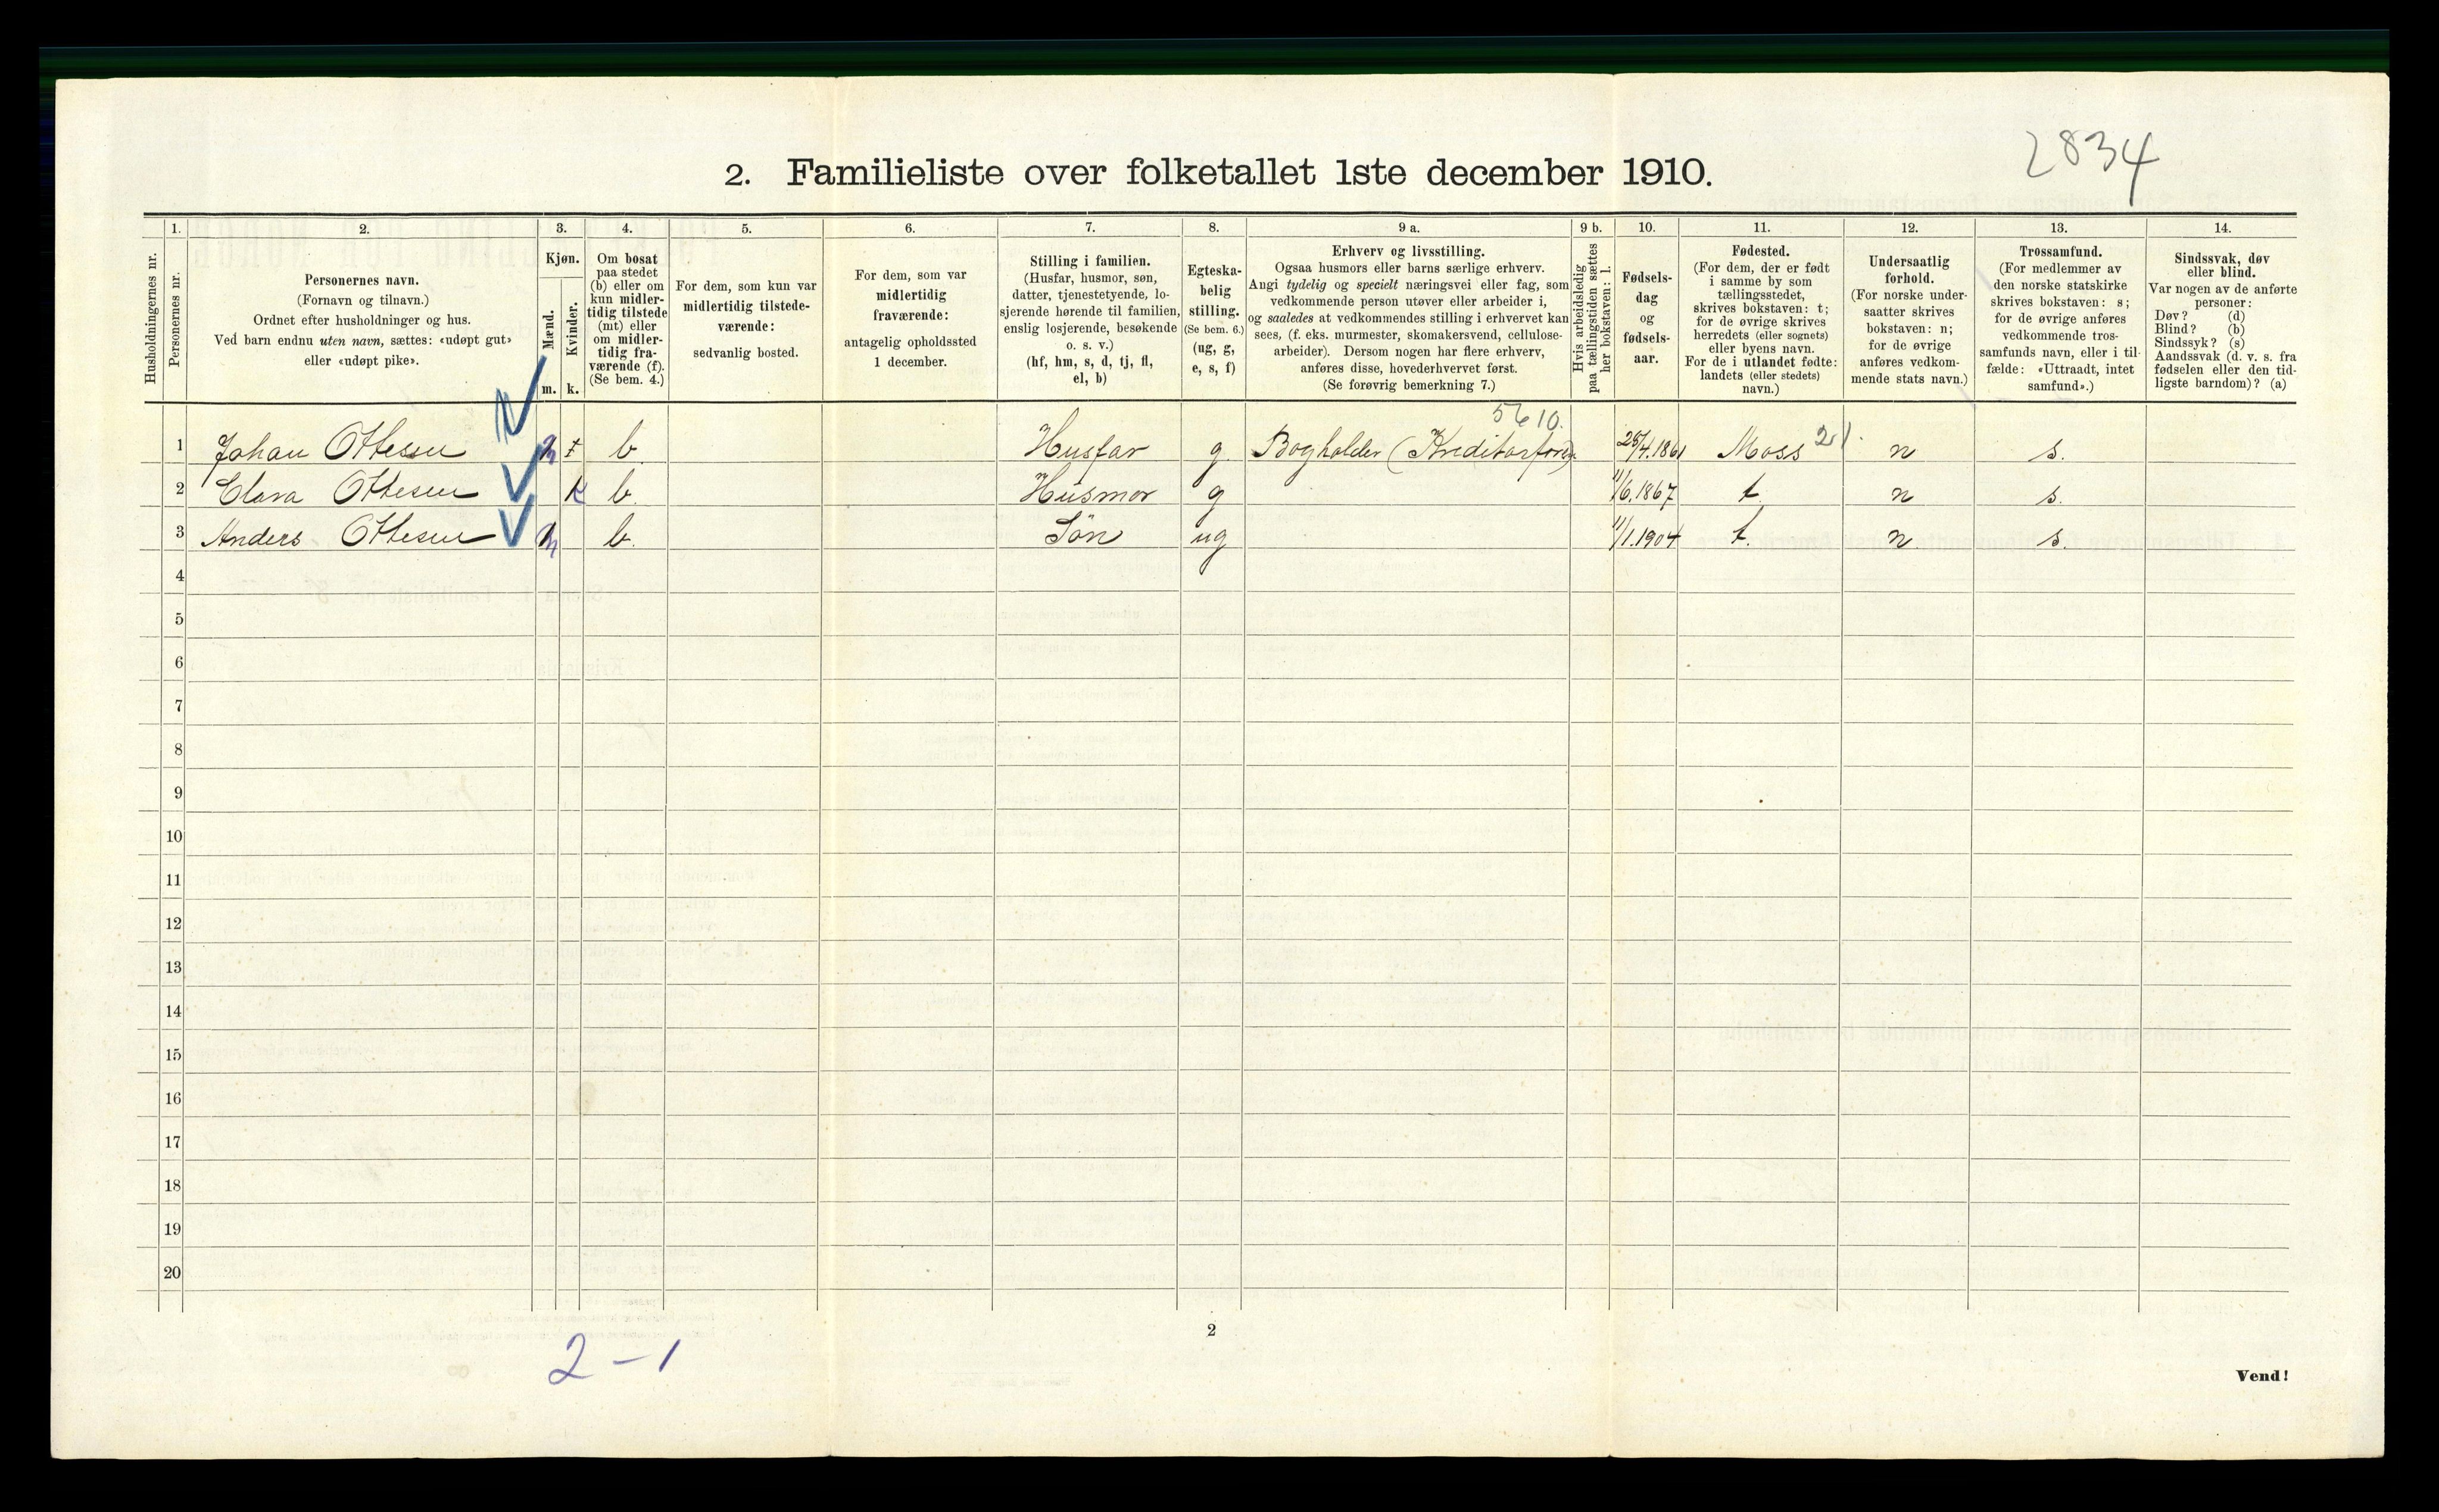 2834
2. Familieliste over folketallet 1ste december 1910.
1. 2. 3. 4. 5. 6. 7. 8. 9 a. 9 b. 10. 11. 12. 13. 14.
Husholdningernes nr.
Personernes nr.
Personernes navn.
(Fornavn og tilnavn.)
Ordnet efter husholdninger og hus.
Ved barn endnu uten navn, sættes: «udøpt gut»
eller «udøpt pike».
Kjøn.
Mænd.
m.
Kvinder.
k.
Om bosat
paa stedet
(b) eller om
kun midler-
tidig tilstede
(mt) eller
om midler-
tidig fra-
værende (f).
(Se bem. 4.)
For dem, som kun var
midlertidig tilstede-
værende:
sedvanlig bosted.
For dem, som var
midlertidig
fraværende:
antagelig opholdssted
1 december.
Stilling i familien.
(Husfar, husmor, søn,
datter, tjenestetyende, lo-
sjerende hørende til familien,
enslig losjerende, besøkende
o. s. v.)
(hf, hm, s, d, tj, fl,
el, b)
Egteska-
belig
stilling.
(Se bem. 6.)
(ug, g,
e, s, f)
Erhverv og livsstilling.
Ogsaa husmors eller barns særlige erhverv.
Angi tydelig og specielt næringsvei eller fag, som
vedkommende person utøver eller arbeider i,
og saaledes at vedkommendes stilling i erhvervet kan
sees, (f. eks. murmester, skomakersvend, cellulose-
arbeider). Dersom nogen har flere erhverv,
anføres disse, hovederhvervet først.
(Se forøvrig bemerkning 7.)
Hvis arbeidsledig
paa tællingstiden sættes
her bokstaven: l.
Fødsels-
dag
og
fødsels-
aar.
Fødested.
(For dem, der er født
i samme by som
tællingsstedet,
skrives bokstaven: t;
for de øvrige skrives
herredets (eller sognets)
eller byens navn.
For de i utlandet fødte:
landets (eller stedets)
navn.)
Undersaatlig
forhold.
(For norske under-
saatter skrives
bokstaven: n;
for de øvrige
anføres vedkom-
mende stats navn.)
Trossamfund.
(For medlemmer av
den norske statskirke
skrives bokstaven: s;
for de øvrige anføres
vedkommende tros-
samfunds navn, eller i til-
fælde: «Uttraadt, intet
samfund».)
Sindssvak, døv
eller blind.
Var nogen av de anførte
personer:
Døv? (d)
Blind? (b)
Sindssyk? (s)
Aandssvak (d. v. s. fra
fødselen eller den tid-
ligste barndom)? (a)
5610.
1 Johan Ottesen m b. Husfar g. Bogholder (Kreditorforg. 25/4.1861 Moss 21. n s.
2 Clara Ottesen k b. Husmor g 11/6.1867 t. n s.
3 Anders Ottesen m b. Søn ug 11/1.1904 t. n s.
4
5
6
7
8
9
10
11
12
13
14
15
16
17
18
19
20
2
2-1
Vend!